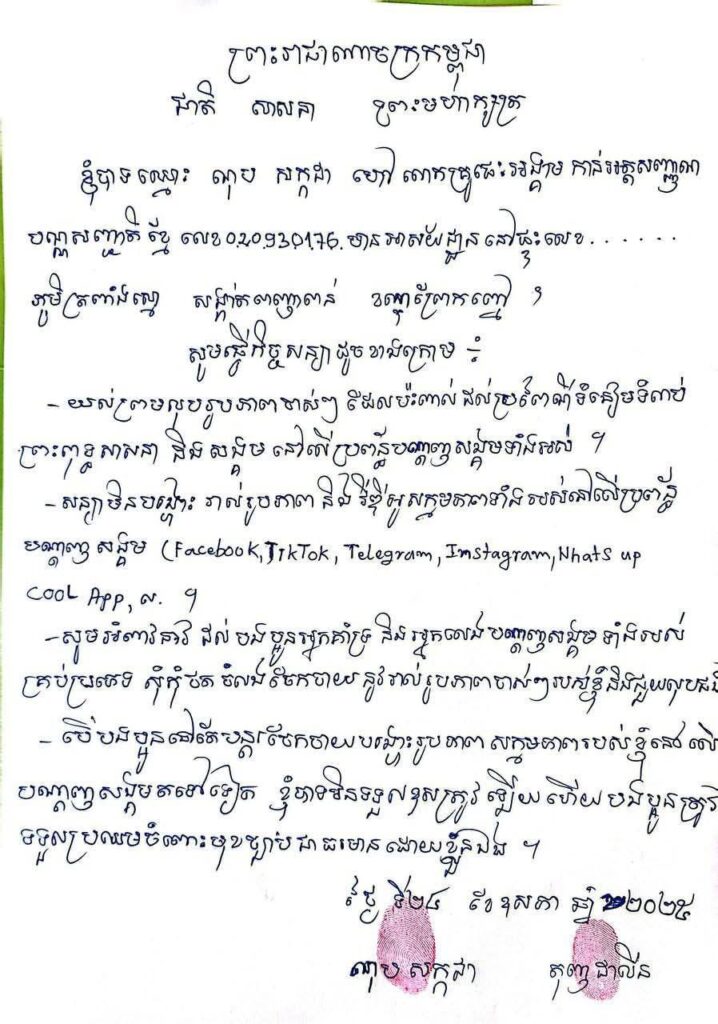 ព្រះរាជាណាចក្រកម្ពុជា
ជាតិ សាសនា ព្រះមហាក្សត្រ
ខ្ញុំបាទឈ្មោះ ណុប សក្កដា ហៅ លោកគ្រូធេះអង្គាម កាន់អត្តសញ្ញាណ
បណ្ណសញ្ជាតិខ្មែរ លេខ020930176.មានអាស័យដ្ឋាននៅផ្ទះលេខ......
ភូមិត្រពាំងស្មៅ សង្កាត់ពញាពន់ ខណ្ឌព្រែកព្នៅ ។
សូមធ្វើកិច្ចសន្យាដូចខាងក្រោម ÷
- យល់ព្រមលុបរូបភាពចាស់ៗ ដែលប៉ះពាល់ដល់ប្រពៃណីទំនៀមទំលាប់
ព្រះពុទ្ធសាសនា និងសង្គម នៅលើប្រព័ន្ធបណ្តាញសង្គមទាំងអស់ ។
- សន្យាមិនបង្ហោះ រាល់រូបភាព និងវីឌីអូសកម្មភាពទាំងរបស់នៅលើប្រព័ន្ធ
បណ្តាញសង្គម (Facebook, TikTok, Telegram, Instagram, Whats up
COOL App, ល. ។
- សូមអំពាវនាវ ដល់បងប្អូនអ្នកគាំទ្រ និងអ្នកលេងបណ្តាញសង្គមទាំងរបស់
គ្រប់ប្រភេទ ស៊ុំកុំថតចំលងចែកចាយ នូវរាល់រូបភាពចាស់ៗរបស់ខ្ញុំនិងជួយលុបផង
- បើបងប្អូននៅតែបន្តរចែកចាយបង្ហោះរូបភាព សកម្មភាពរបស់ខ្ញុំនៅ លើ
បណ្តាញសង្គមតទៅទៀត ខ្ញុំបាទមិនទទួលខុសត្រូវឡើយ ហើយបងប្អូនត្រូវ
ទទួលប្រឈមចំពោះមុខច្បាប់ជាធរមានដោយខ្លួនឯង ។
ថ្ងៃ ទី២៤ ខែឧសភា ឆ្នាំ ២០២៥
ណុប សក្កដា តុញ ដាលីន